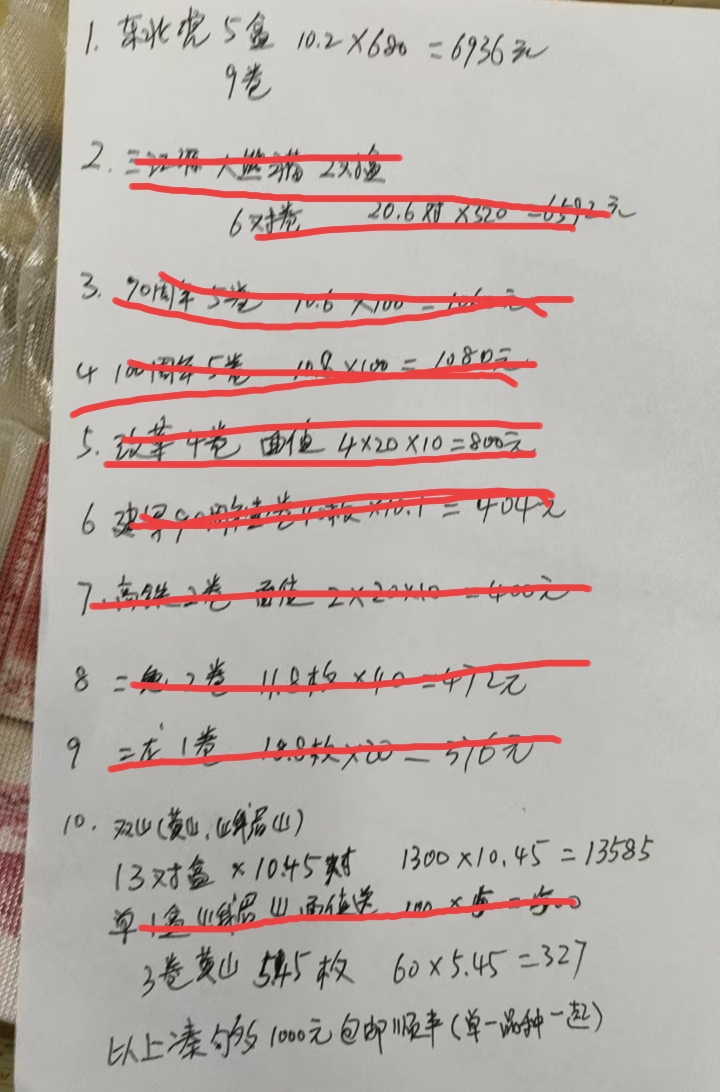 1. 东北虎 5盒 10.2×680=6936元
9卷
2. 三江源 大熊猫 2对盒
6对卷 20.6对×320=6592元
3. 90周年 5卷 10.6×100=1060元
4 100周年 5卷 10.8×100=1080元
5. 改革 4卷 面值 4×20×10=800元
6 建军90周年 ×10.1=404元
7. 高铁 2卷 面值 2×20×10=400元
8 二兔 2卷 11.8枚×40=472元
9 二龙 1卷 18.8枚×20=376元
10. 双山(黄山,峨眉山)
13对盒×10.45对 1300×10.45=13585
单1盒峨眉山面值送 100×5=500
3卷黄山 5.45枚 60×5.45=327
以上凑够1000元包邮顺丰(单一品种一起)